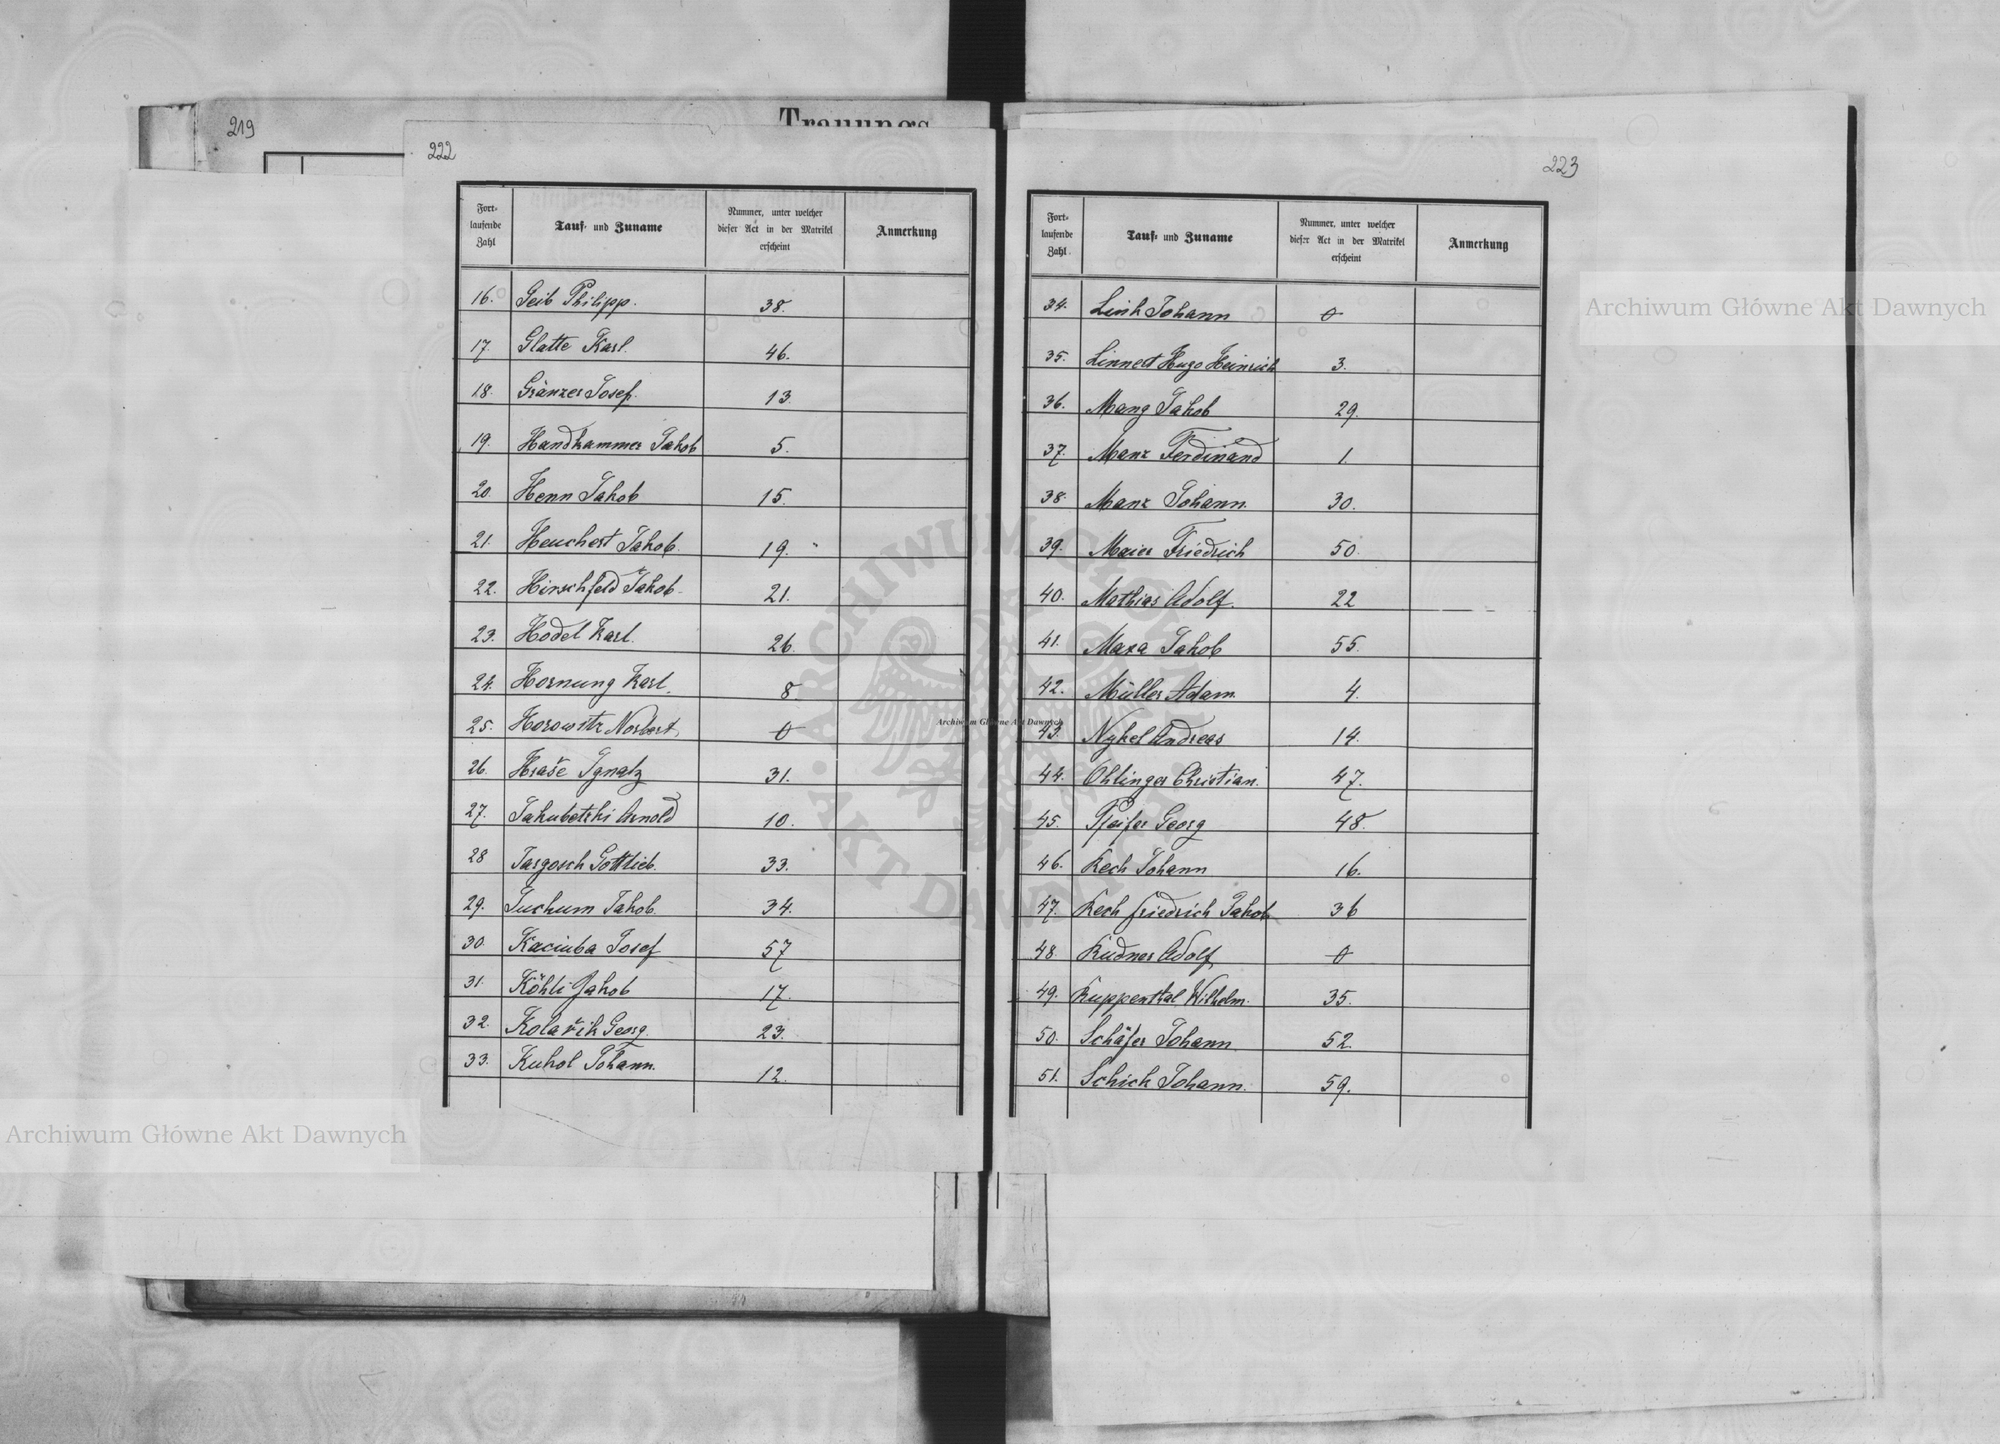 219
Trauungs
222
Fort-
laufende
Zahl
Tauf- und Zuname
Nummer, unter welcher
dieser Act in der Matrikel
erscheint
Anmerkung
16. Geib Philipp. 38.
17. Glatte Karl. 46.
18. Gränzer Josef. 13.
19. Handkammer Jakob 5.
20. Henn Jakob 15.
21. Heuchert Jakob. 19.
22. Hirschfeld Jakob. 21.
23. Hodel Karl. 26.
24. Hornung Karl. 8.
25. Horowitz Norbert 0
26. Hraše Ignatz 31.
27. Jakubetzki Arnold 10.
28 Jargosch Gottlieb. 33.
29. Juchum Jakob. 34.
30. Kaciuba Josef 57
31. Köhli Jakob 17.
32. Kolařik Georg. 23.
33. Kukol Johann. 12.
223
Fort-
laufende
Zahl
Tauf- und Zuname
Nummer, unter welcher
dieser Act in der Matrikel
erscheint
Anmerkung
34. Link Johann 0
35. Linnert Hugo Heinrich 3.
36. Mang Jakob 29.
37. Manz Ferdinand 1.
38. Manz Johann. 30.
39. Maier Friedrich 50.
40. Mathias Adolf. 22
41. Maxa Jakob 55.
42. Müller Adam. 4.
43. Nykel Andreas 14.
44. Ohlinger Christian. 47.
45. Pfeifer Georg 48.
46. Rech Johann 16.
47. Rech Friedrich Jakob 36
48. Rudner Adolf 0
49. Ruppenthal Wilhelm. 35.
50. Schäfer Johann 52.
51. Schick Johann. 59.
Archiwum Główne Akt Dawnych
Archiwum Główne Akt Dawnych
Archiwum Główne Akt Dawnych
ARCHIWUM GŁÓWNE AKT DAWNYCH